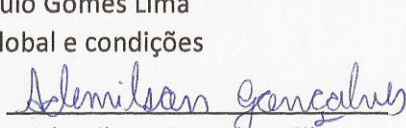 ulo Gomes Lima
lobal e condições
Ademilson Gonçalves